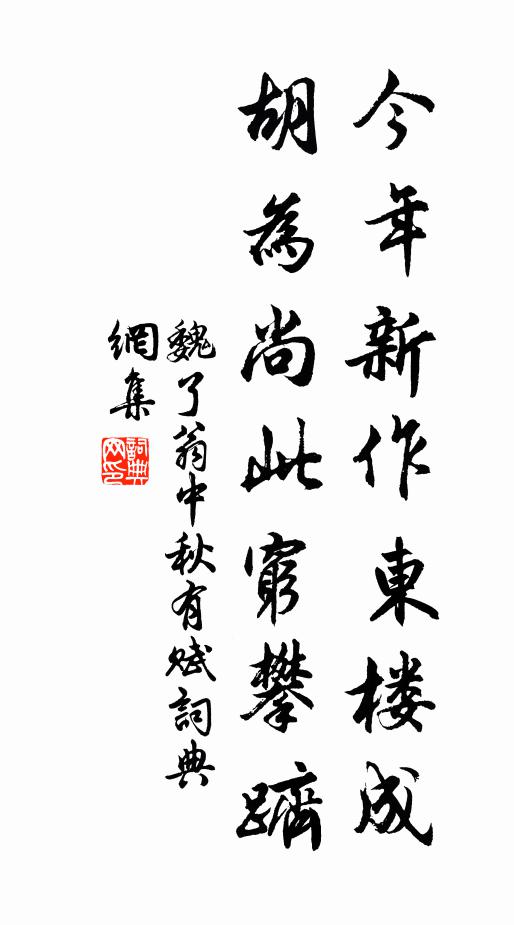 今年新作東楼成
胡為尚此窮攀躋
魏了翁中秋有賦詞典
網集
詞典网印